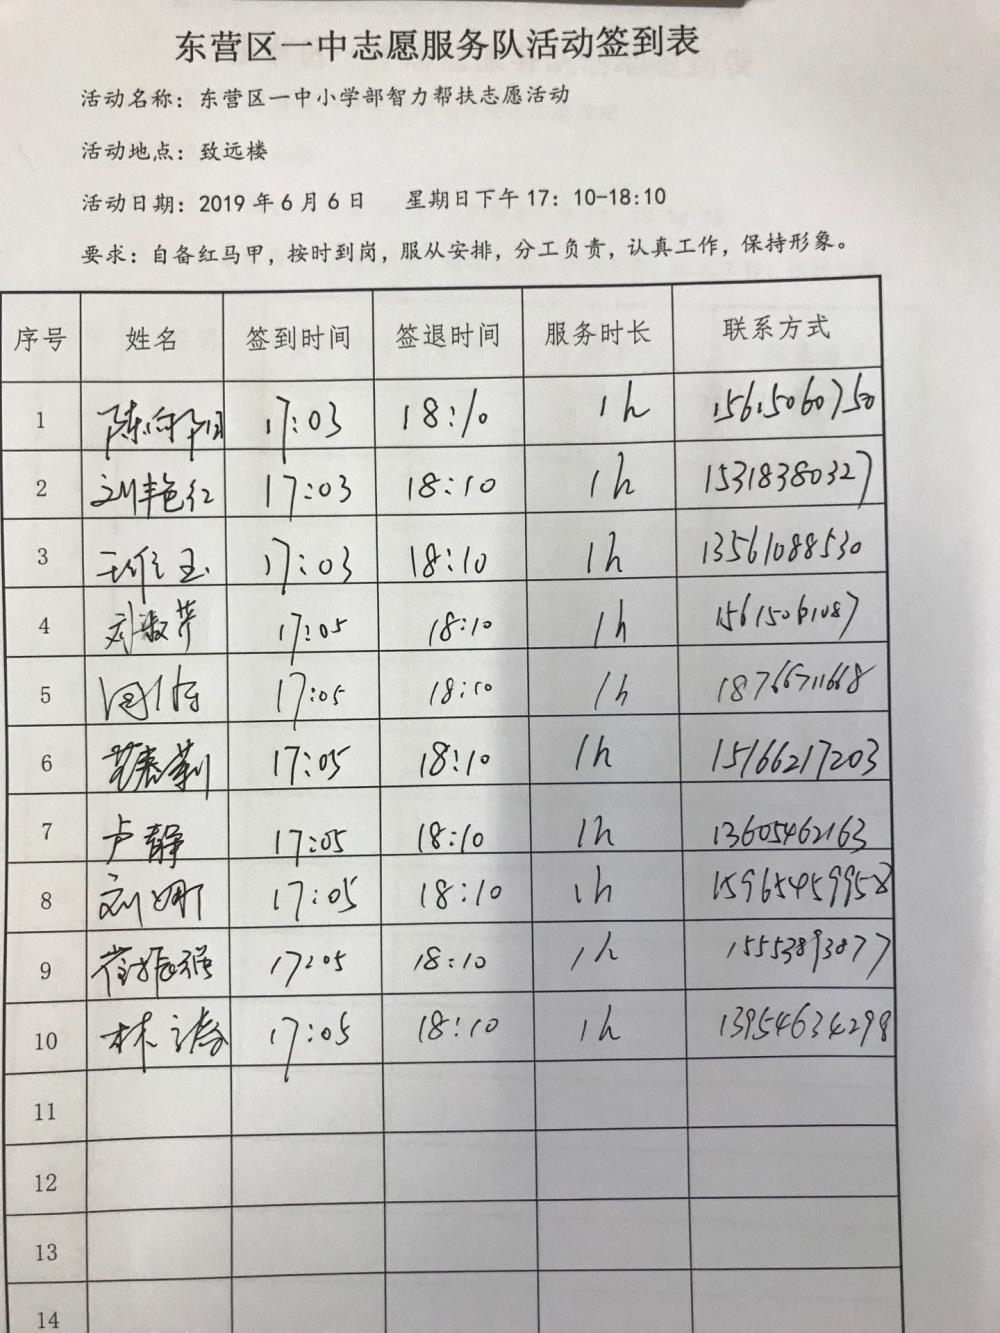 东营区一中志愿服务队活动签到表
活动名称：东营区一中小学部智力帮扶志愿活动
活动地点：致远楼
活动日期：2019年6月6日 星期日下午17：10-18:10
要求：自备红马甲，按时到岗，服从安排，分工负责，认真工作，保持形象。
序号 姓名 签到时间 签退时间 服务时长 联系方式
1 陈向阳 17:03 18:10 1h 15615060750
2 刘艳红 17:03 18:10 1h 15318380327
3 17:03 18:10 1h 13561088530
4 刘淑芹 17:05 18:10 1h 15615061087
5 17:05 18:10 1h 18766711668
6 17:05 18:10 1h 15166217203
7 卢静 17:05 18:10 1h 13605462163
8 刘娜 17:05 18:10 1h 15965459958
9 崔振强 17:05 18:10 1h 15553893077
10 林涛 17:05 18:10 1h 13954634298
11
12
13
14